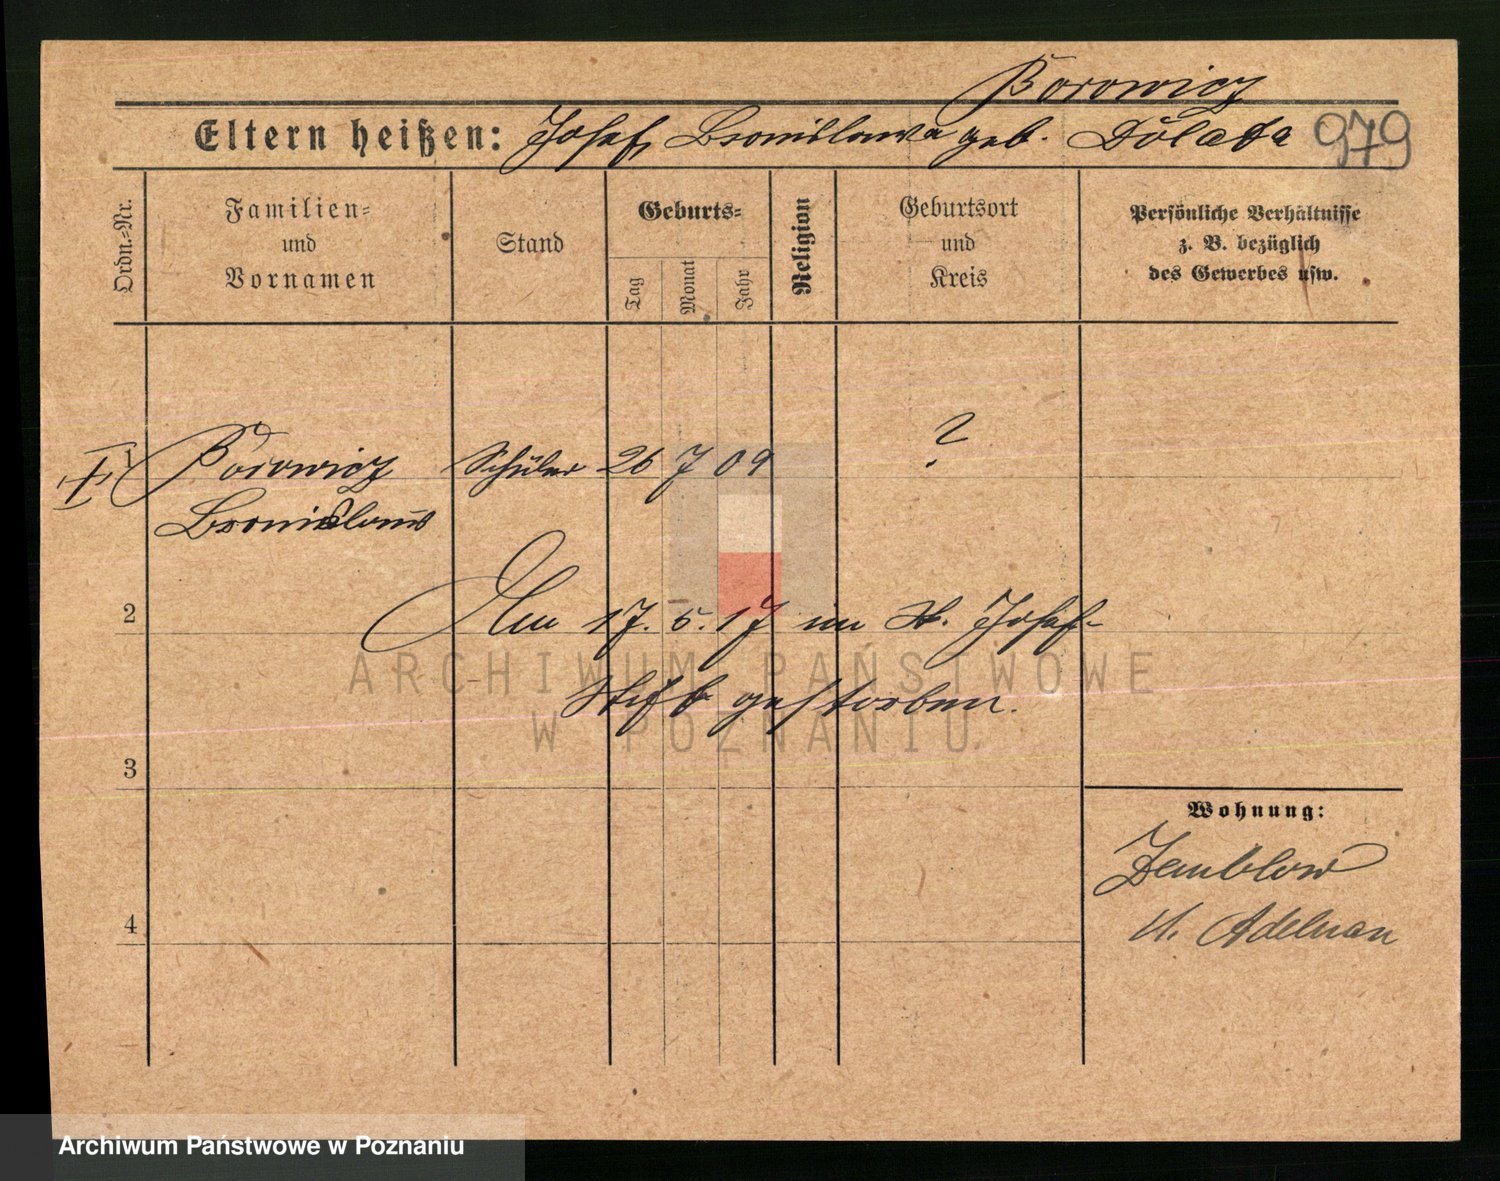 Borowicz
Eltern heißen: Josef, Bronislawa geb. Dolata 979
Ordn.-Nr.
Familien-
und
Vornamen
Stand
Geburts-
Tag
Monat
Jahr
Religion
Geburtsort
und
Kreis
Persönliche Verhältnisse
z. B. bezüglich
des Gewerbes usw.
1 Borowicz Schüler 26 7 09 ?
Bronislaus
2 Am 17. 5. 17 im St. Josef-
Stift gestorben.
ARCHIWUM PAŃSTWOWE
W POZNANIU
3
Wohnung:
4
Adelnau
Archiwum Państwowe w Poznaniu